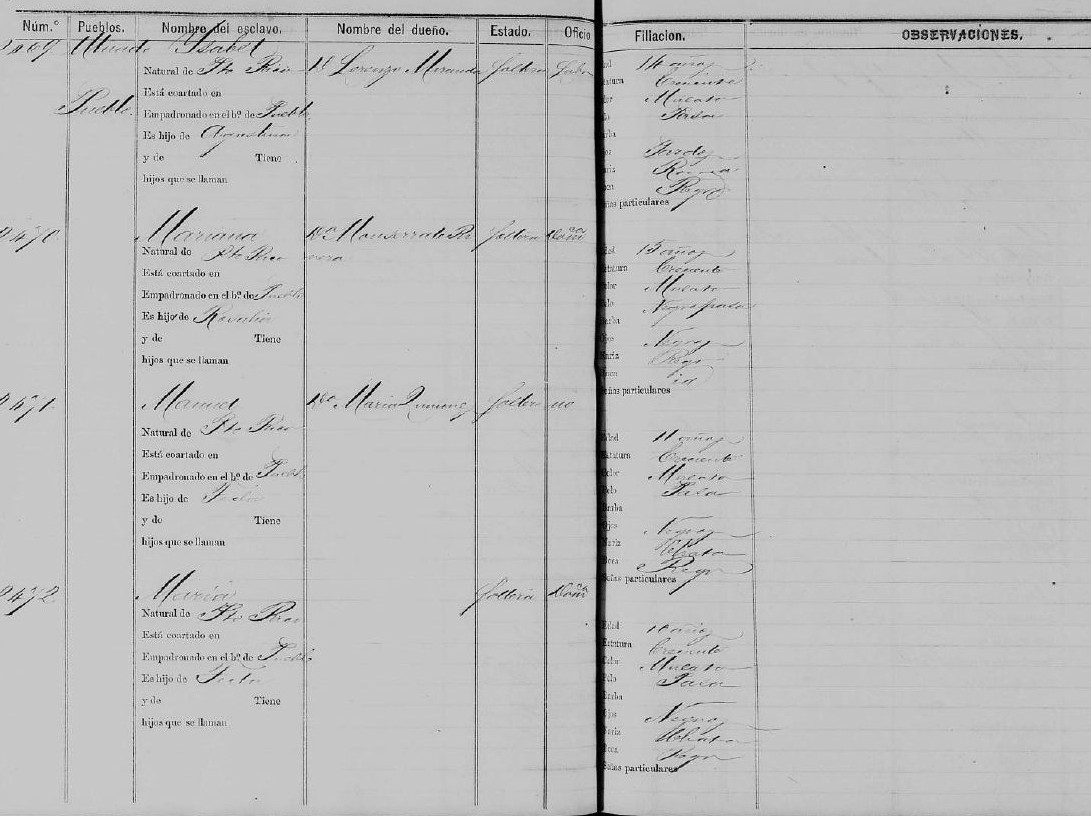 Núm.º Pueblos. Nombre del esclavo. Nombre del dueño. Estado. Oficio Filiacion. OBSERVACIONES.
Ysabel
Natural de Pto Rico Dn Lorenzo Miranda Soltera Labr 14 años
Está coartado en Creciente
Pueblo Empadronado en el bº. de Pueblo Mulato
Es hijo de Agustina Pasa
y de Tiene Pardos
hijos que se llaman Roma
Regr
señas particulares
2470 Mariana Da Monserrate Ri Soltera Domca
Natural de Pto Rico vera 13 años
Está coartado en Estatura Creciente
Empadronado en el bº. de Pueblo Color Mulato
Es hijo de Pelo Negro pasa
y de Tiene Barba
hijos que se llaman Ojos Negros
Nariz Regr
Boca id
Señas particulares
2471 Manuel Da Maria Soltero no
Natural de Pto Rico Edad 11 años
Está coartado en Estatura Creciente
Empadronado en el bº. de Pueblo Color Mulato
Es hijo de Tecla Pelo Pasa
y de Tiene Barba
hijos que se llaman Ojos Negros
Nariz Chata
Boca Regr
Señas particulares
2472 Maria Soltera Domca
Natural de Pto Rico Edad 10 años
Está coartado en Estatura Creciente
Empadronado en el bº. de Pueblo Color Mulato
Es hijo de Tecla Pelo Pasa
y de Tiene Barba
hijos que se llaman Ojos Negros
Nariz Chata
Boca Regr
Señas particulares